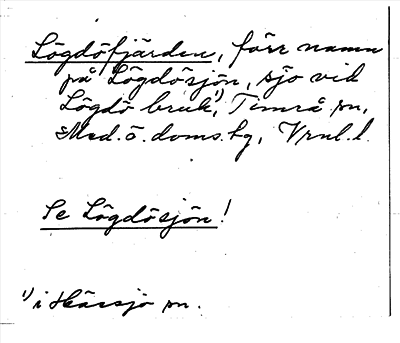 Lögdöfjärden, förr namn
på Lögdösjön, sjö vid
Lögdö bruk¹⁾, Timrå sn,
Med.ö.doms.hg, Vrnl.l.
Se Lögdösjön!
¹⁾ i Hässjö sn.